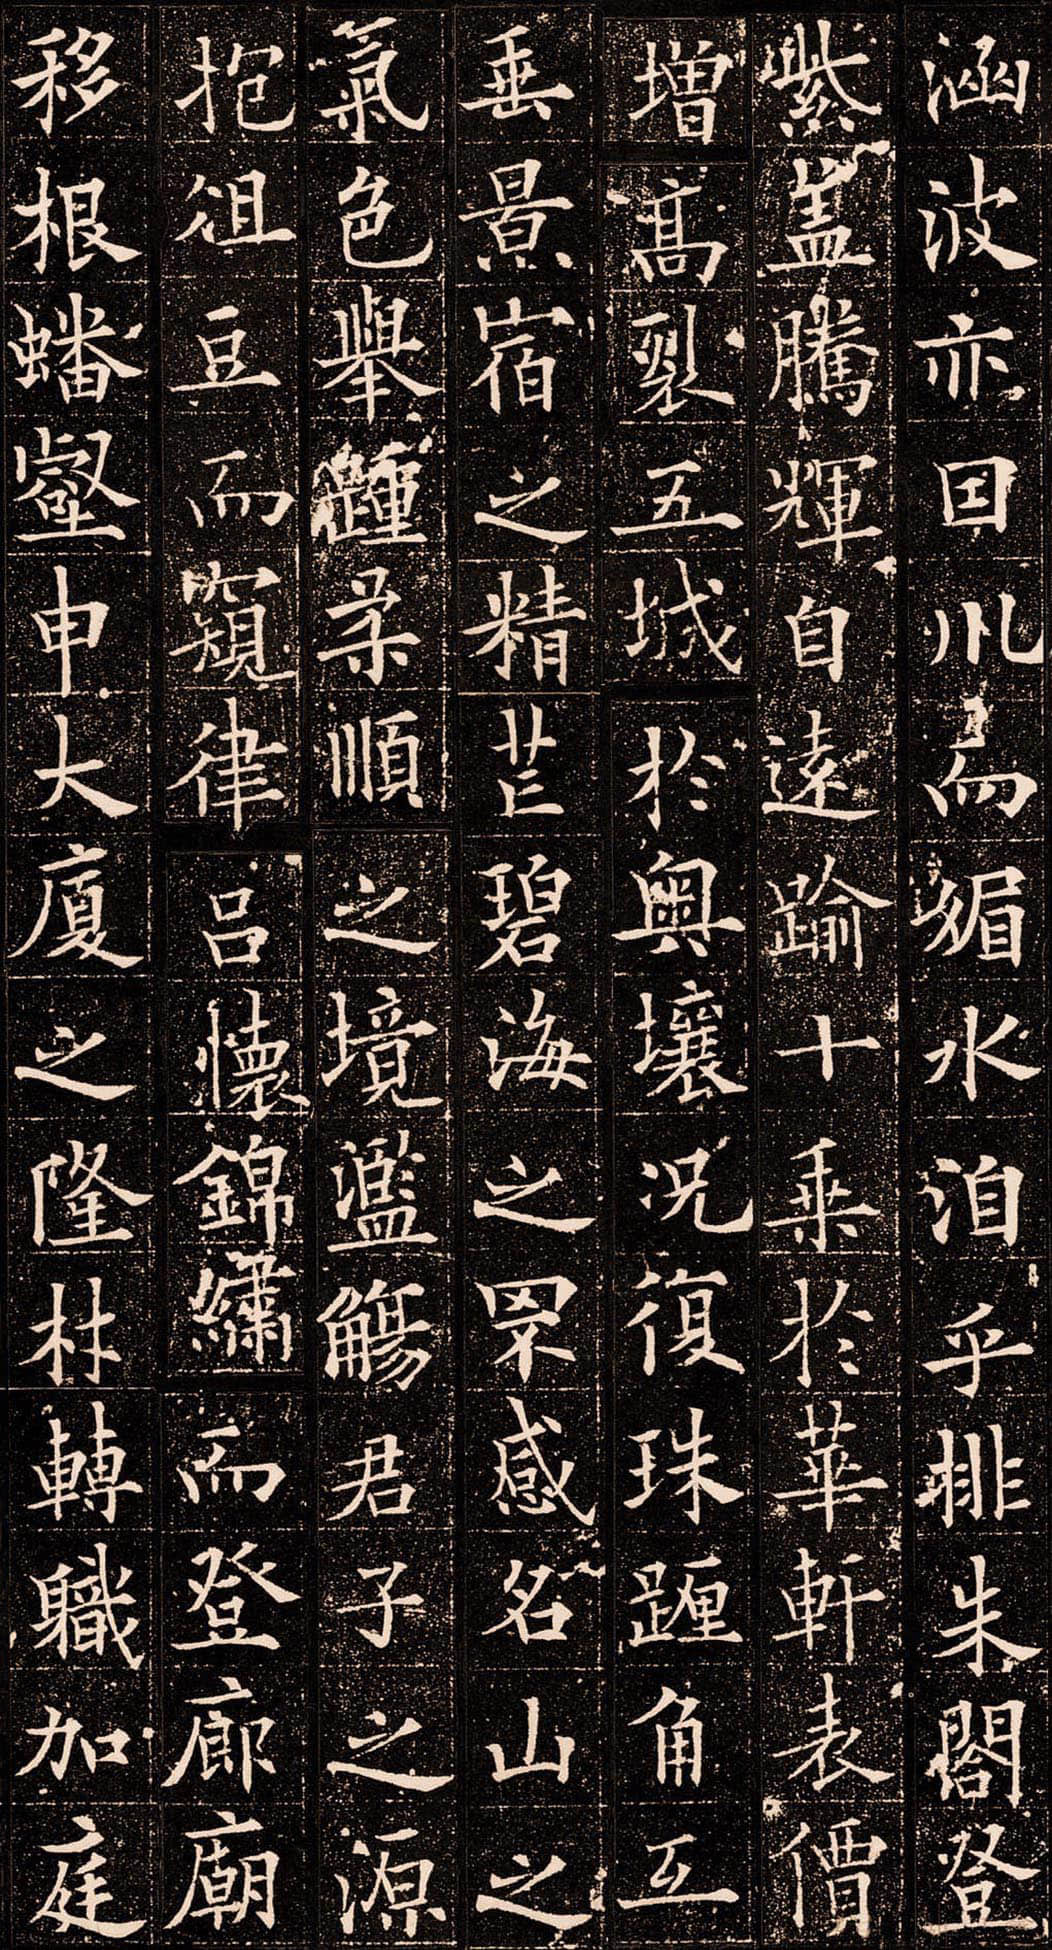 涵波亦囙川而媚水洎乎排朱閣登
紫蓋騰輝自遠踰十乘於華軒表價
增高裂五城於奧壤况復珠躔角亢
垂景宿之精芒碧海之罘感名山之
氣色舉踵柔順之境濫觴君子之源
抱俎豆而窺律呂懷錦繡而登廊廟
移根蟠壑申大廈之隆材轉職加庭